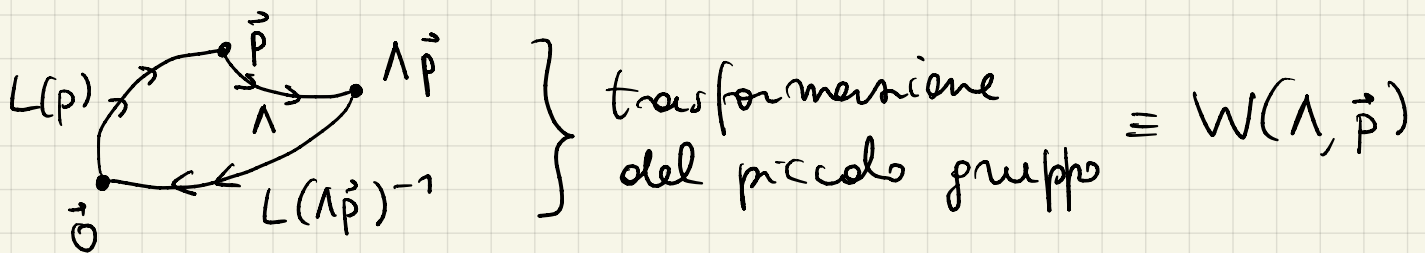 L(p)
p⃗
Λ
Λp⃗
L(Λp⃗)⁻¹
0⃗
trasformazione
del piccolo gruppo
≡ W(Λ, p⃗)